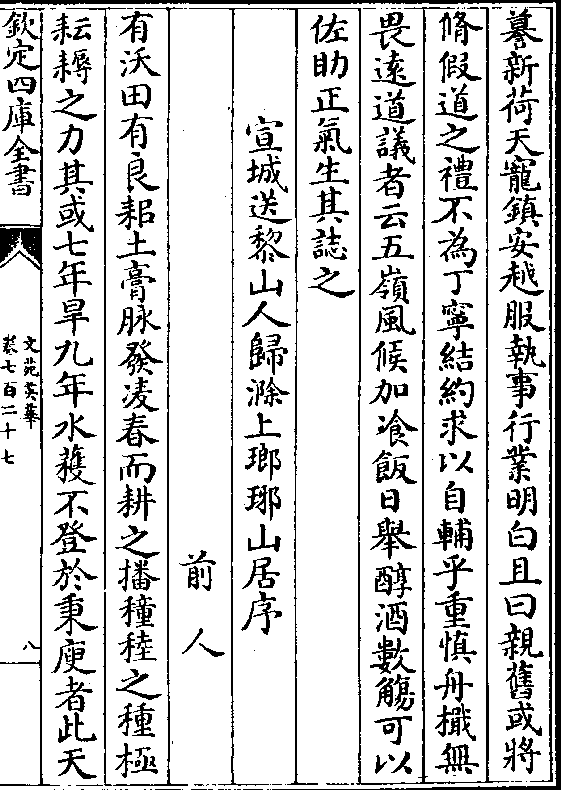 蓦新荷天寵鎮安越服執事行業明白且曰親舊或將
脩假道之禮不為丁寧結約求以自輔乎重慎舟檝無
畏逺道議者云五嶺風候加飡飯日舉醇酒數觴可以
佐助正氣生其誌之
宣城送黎山人歸滁上瑯琊山居序
前人
有沃田有良耜土膏脉發凌春而耕之播穜稑之種極
耘耨之力其或七年旱九年水穫不登於秉庾者此天
欽定四庫全書
文苑英華
卷七百二十七
八